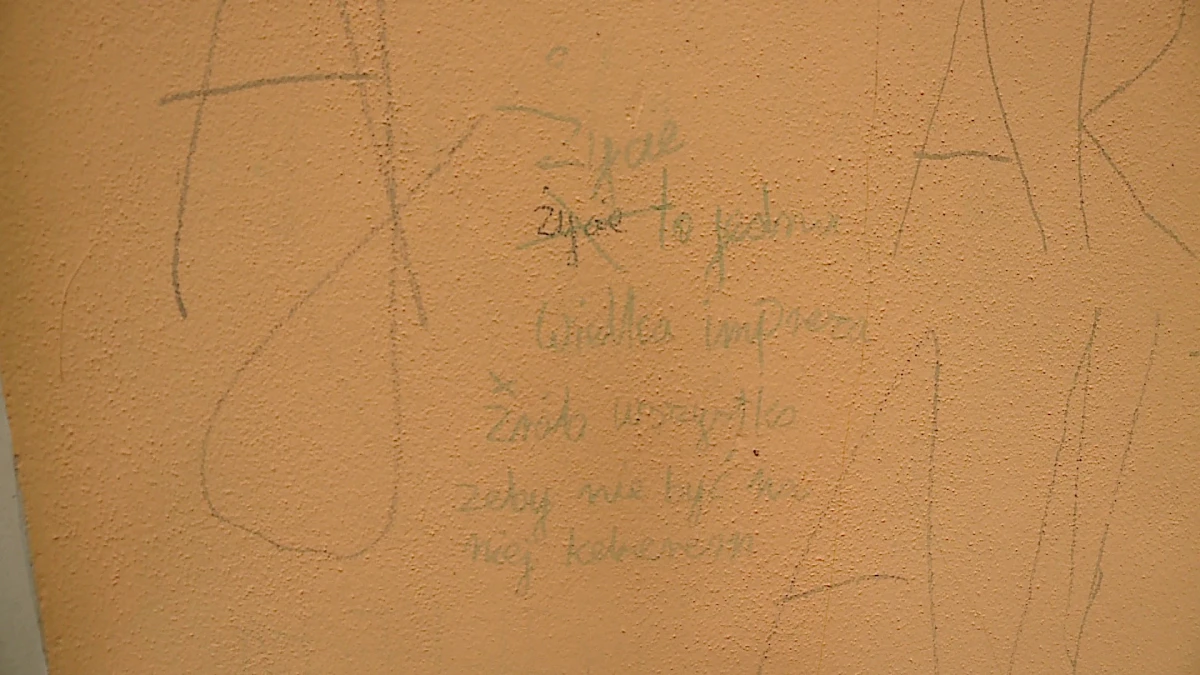 A
AR
Życie
Życie to jedna
wielka impreza
Zrób wszystko
żeby nie być na
niej kelnerem